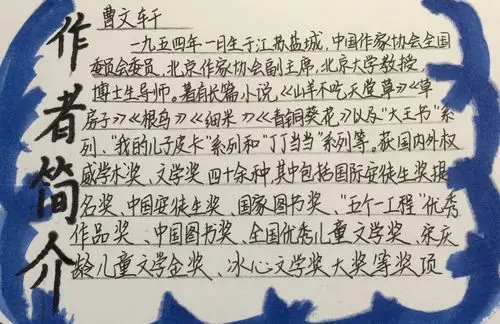 作者简介
曹文轩
一九五四年一月生于江苏盐城,中国作家协会全国
委员会委员,北京作家协会副主席,北京大学教授,
博士生导师。著有长篇小说《山羊不吃天堂草》《草
房子》《根鸟》《细米》《青铜葵花》以及"大王书"系
列、"我的儿子皮卡"系列和"丁丁当当"系列等。获国内外权
威学术奖、文学奖四十余种,其中包括国际安徒生奖提
名奖、中国安徒生奖、国家图书奖、"五个一工程"优秀
作品奖、中国图书奖、全国优秀儿童文学奖、宋庆
龄儿童文学金奖、冰心文学奖大奖等奖项